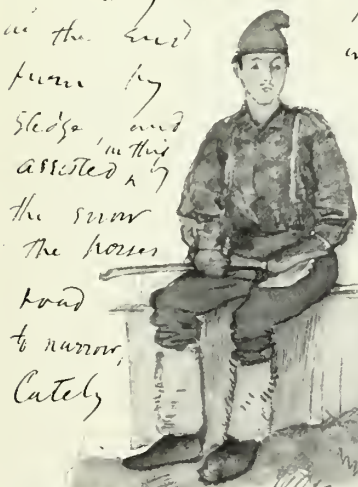 in the end
turn by
sledge and
assisted in this by
the snow
the horses
road
to narrow,
Cately